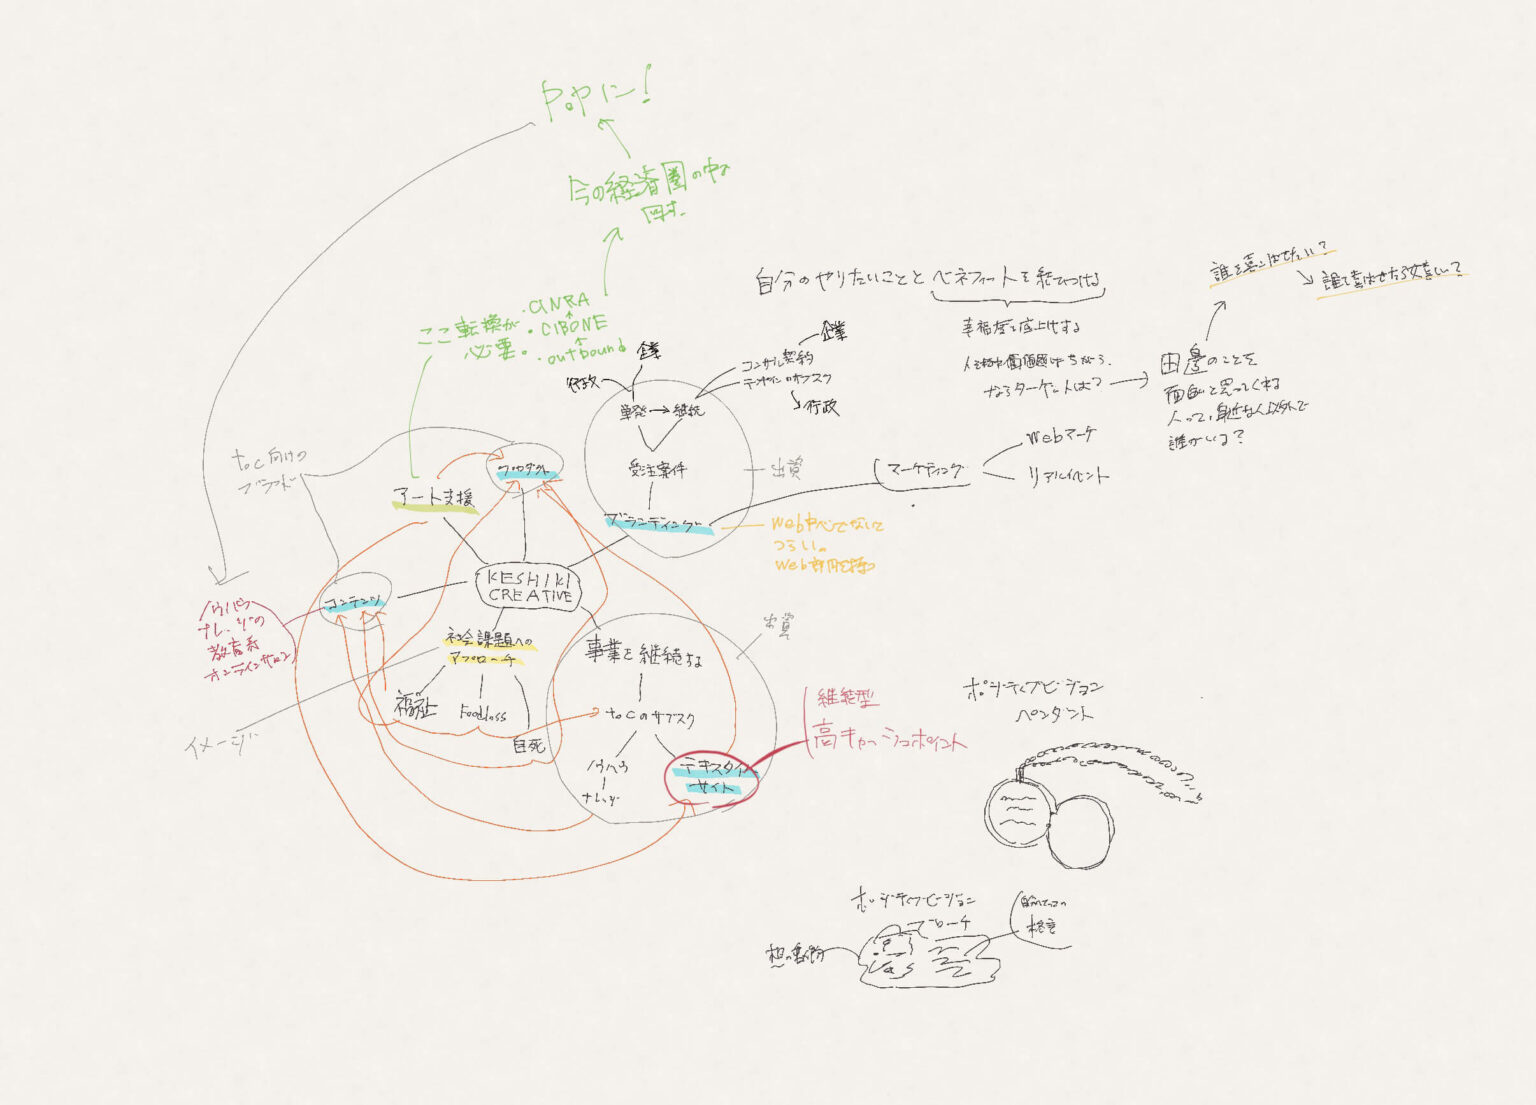 POPに!
今の経済圏の中で
回す。
ここ転換が
必要。
・CINRA
・CIBONE
・outbound
自分のやりたいことと ベネフィットを結びつける
幸福度を底上げする
なるターゲットは?
田邊のことを
面白いと思ってくれる
人って、身近な人以外で
誰がいる?
誰を喜ばせたい?
誰を喜ばせたら嬉しい?
企業
行政
単発→継続
企業
コンサル契約
デザインのサブスク
行政
受注案件
出資
ブランディング
マーケティング
Webマーケ
リアルイベント
Web中心でないと
つらい。
toC向けの
ブランド
プロダクト
アート支援
KESHIKI
CREATIVE
コンテンツ
ノウハウ
ナレッジの
教育系
オンラインサロン
社会課題への
アプローチ
福祉
Foodloss
自死
イメージ
事業を継続する
出資
toCのサブスク
ノウハウ
ナレッジ
テキスタイル
サイト
継続型
高キャッシュポイント
ポジティブビジョン
ペンダント
ポジティブビジョン
ブローチ